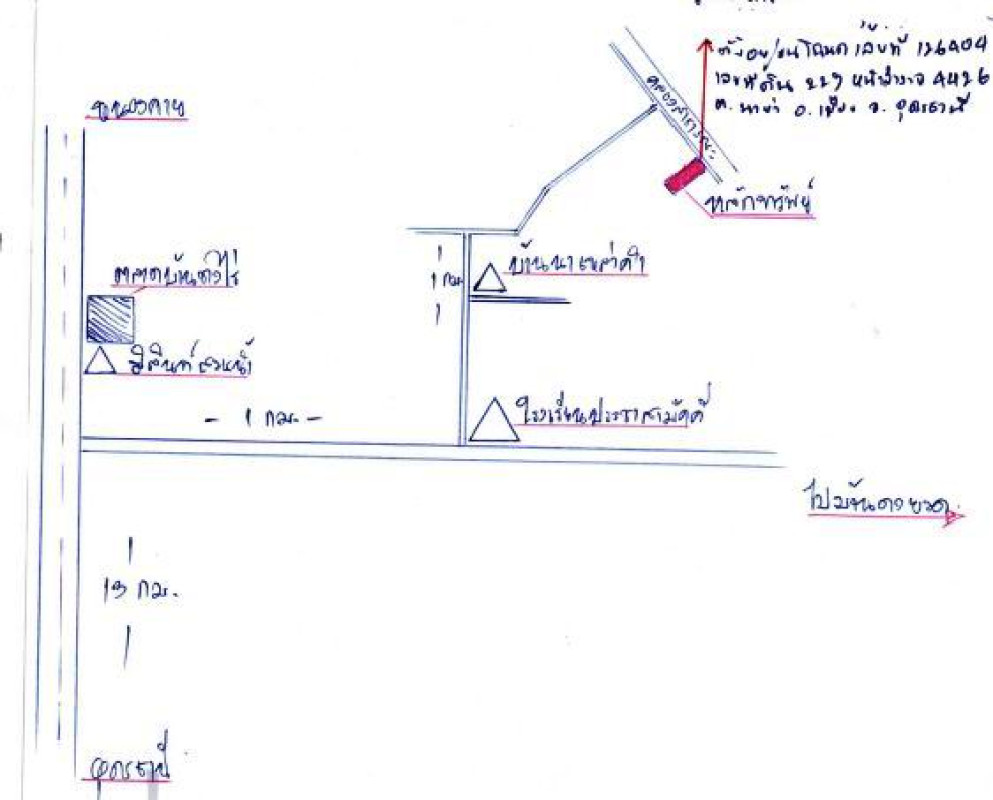 ตั้งอยู่บนโฉนดเลขที่ 126404
เลขที่ดิน 229 หน้าสำรวจ 4426
ต. นาข่า อ. เมือง จ. อุดรธานี
หนองคาย
คลองสาธารณะ
หลักทรัพย์
ตลาดบ้านดงไร่
บ้านนาเหล่าคำ
1 กม.
รีสอร์ท สวนน้ำ
- 1 กม. -
โรงเรียนประชาสามัคคี
ไปบ้านดงยวด
13 กม.
อุดรธานี